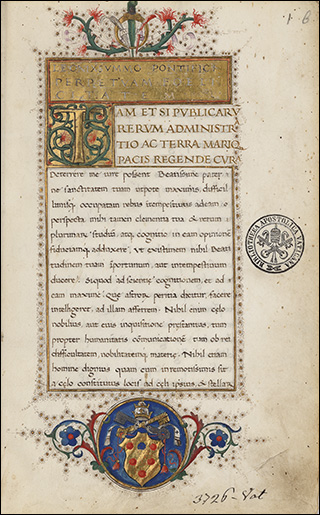 1 6.
TAM ET SI PVBLICARV
RERVM ADMINISTR
TIO AC TERRA MARIQ
PACIS REGENDE CVRA
Deterrere me iure possent Beatissime pater
ne sanctitatem tuam utpote maximis difficil
limisq occupatam rebus
perspecta mihi tamen clementia tua & rerum
plurimarum studium atq cognitio in eam opinionem
fiduciamq adduxere, ut existimem nihil Beati
tudinem tuam importunum, aut intempestiuum
ducere, quod ad scientie cognitionem, et ad
eam maxime que astrorum peritia dicitur, facere
intelligeret, ad illam afferrem. Nihil enim celo
nobilius, aut eius inquisitione prestantius, tum
propter humanitatis communicationem tum ob rei
difficultatem, nobilitatemq materie. Nihil etiam
homine dignius quam cum in remotissimis sit
a celo constitutus locis ad celi ipsius & stellar
BIBLIOTHECA APOSTOLICA VATICANA
3726-Vat